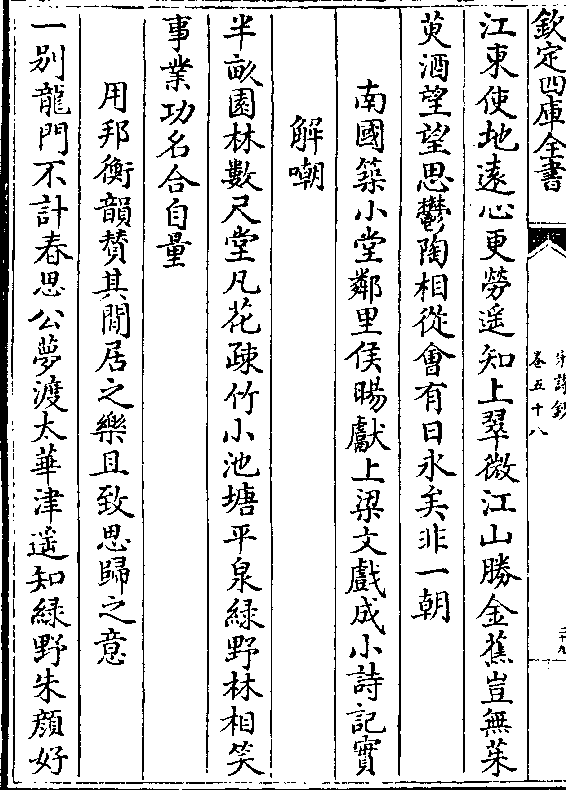 欽定四庫全書
宋詩鈔
卷五十八
江東使地遠心更勞遥知上翠微江山勝金蕉豈無茱
萸酒望望思鬱陶相從會有日永矣非一朝
南國築小堂鄰里侯暘獻上梁文戲成小詩記實
解嘲
半畝園林數尺堂凡花疎竹小池塘平泉緑野林相笑
事業功名合自量
用邦衡韻賛其閒居之樂且致思歸之意
一別龍門不計春思公夢渡太華津遥知緑野朱顔好